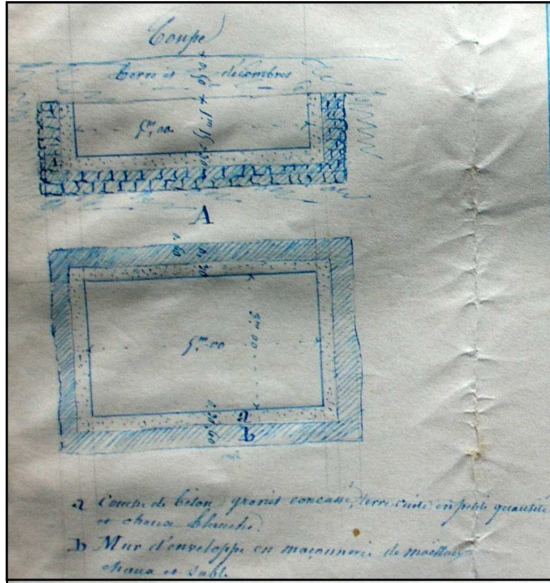 Coupe
terre et décombres
5m,00
A
5m,00
a
b
a Couche de béton, granit concassé, terre cuite en petite quantité
et chaux blanche.
b Mur d'enveloppe en maçonnerie de moellons
chaux et sable.